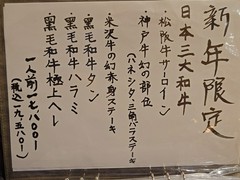 新年限定
日本三大和牛
・松阪牛サーロイン
・神戸牛幻の部位
(ハネシタ・三角バラステーキ)
・米沢牛の幻赤身ステーキ
・黒毛和牛タン
・黒毛和牛ハラミ
・黒毛和牛極上ヘレ
一人前一七、八〇〇-
(税込一九、五八〇-)